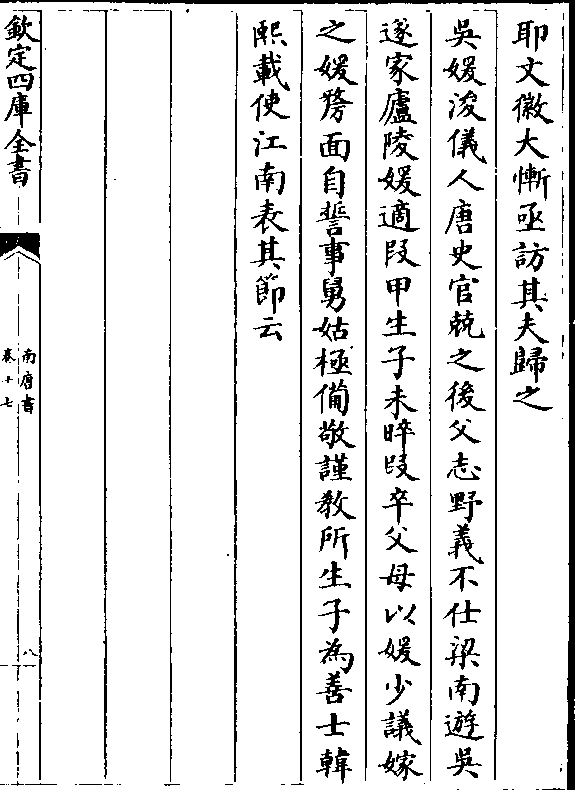 耶文徽大慚亟訪其夫歸之
吳媛浚儀人唐史官兢之後父志野義不仕梁南遊吳
遂家廬陵媛適段甲生子未晬段卒父母以媛少議嫁
之媛剺面自誓事舅姑極備敬謹教所生子為善士韓
熙載使江南表其節云
欽定四庫全書
南唐書
卷十七
八